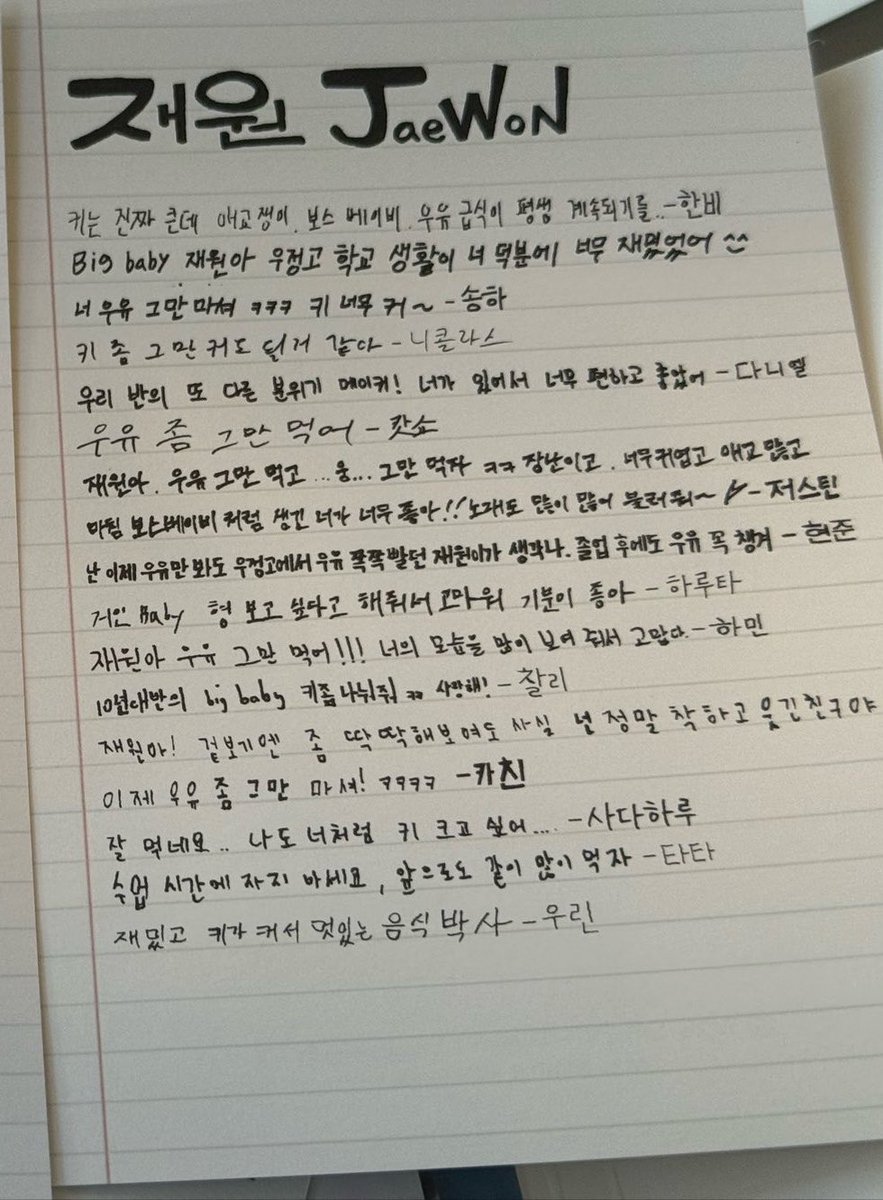 재원 JaeWoN
키는 진짜 큰데 애교쟁이. 보스 베이비. 우유급식이 평생 계속되기를.. -한비
Big baby 재원아 우정고 학교 생활이 너 덕분에 너무 재밌었어 ^^
너 우유 그만 마셔 ㅋㅋㅋ 키 너무 커~ -송하
키 좀 그만 커도 될거 같아 -니콜라스
우리 반의 또 다른 분위기 메이커! 너가 있어서 너무 편하고 좋았어 -다니엘
우유 좀 그만 먹어 -캇쇼
재원아. 우유 그만 먹고 ...웅... 그만 먹자 ㅋㅋ 장난이고. 너무 귀엽고 애교 많고
마침 보스베이비처럼 생긴 너가 너무 좋아!! 노래도 많이 많이 불러줘~ -저스틴
난 이제 우유만 봐도 우정고에서 우유 쫙쫙 빨던 재원이가 생각나. 졸업 후에도 우유 꼭 챙겨 -현준
거인 Baby 형 보고 싶다고 해줘서 고마워 기분이 좋아 -하루타
재원아 우유 그만 먹어!!! 너의 모습을 많이 보여 줘서 고맙다. -하민
10년대반의 big baby 키좀 나눠줘 ㅋㅋ 사랑해! -찰리
재원아! 겉보기엔 좀 딱딱해보여도 사실 넌 정말 착하고 웃긴친구야
이제 우유 좀 그만 마셔! ㅋㅋㅋㅋ -카친
잘 먹네요.. 나도 너처럼 키 크고 싶어... -사다하루
수업 시간에 자지 마세요, 앞으로도 같이 많이 먹자 -타타
재밌고 키가 커서 멋있는 음식 박사 -우린